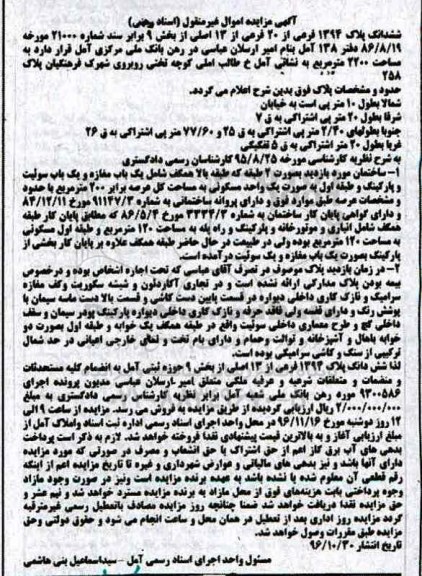 آگهی مزایده اموال غیرمنقول (اسناد رهنی)
ششدانگ پلاک ۱۳۹۴ فرعی از ۲۰ فرعی از ۱۳ اصلی از بخش ۹ برابر سند شماره ۲۱۰۰۰ مورخه
۸۶/۸/۱۹ دفتر ۱۳۸ آمل بنام امیر ارسلان عباسی در رهن بانک ملی مرکزی آمل قرار دارد به
مساحت ۲۲۰۰ مترمربع به نشانی آمل خ طالب املی کوچه تختی روبروی شهرک فرهنگیان پلاک
۲۵۸
حدود و مشخصات پلاک فوق بدین شرح اعلام می گردد.
شمالا بطول ۱۰ متر پی است به خیابان
شرقا بطول ۲۰ متر پی اشتراکی به ق ۷
جنوبا بطولهای ۲/۳۰ متر پی اشتراکی به ق ۲۵ و ۷۷/۶۰ متر پی اشتراکی به ق ۲۶
غربا بطول ۲۰ متر اشتراکی به ق ۵ تفکیکی
به شرح نظریه کارشناسی مورخه ۹۵/۸/۲۵ کارشناسان رسمی دادگستری
۱- ساختمان مورد بازدید بصورت ۲ طبقه که طبقه بالا همکف شامل یک باب مغازه و یک باب سوئیت
و پارکینگ و طبقه اول به صورت یک واحد مسکونی به مساحت کل عرصه برابر ۲۰۰ مترمربع با حدود
و مشخصات عرصه طبق موارد فوق و دارای پروانه ساختمانی به شماره ۹۱۱۴۷/۳ مورخ ۸۴/۱۲/۱۱
و دارای گواهی پایان کار ساختمان به شماره ۳۳۳۴/۳ مورخ ۸۶/۵/۴ که مطابق پایان کار طبقه
همکف شامل انباری و موتورخانه و پارکینگ و راه پله به مساحت ۱۲۰ مترمربع و طبقه اول مسکونی
به مساحت ۱۲۰ مترمربع بوده ولی در طبیعت در حال حاضر طبقه همکف علاوه بر پایان کار بخشی از
پارکینگ بصورت یک باب مغازه و یک سوئیت درآمده است.
۲- در زمان بازدید پلاک موصوف در تصرف آقای عباسی که تحت اجاره اشخاص بوده و درخصوص
بیمه بودن پلاک مدارکی ارائه نشده است و در تجاری آکاردئون و شیشه سکوریت وکف مغازه
سرامیک و نازک کاری داخلی دیواره در قسمت پایین دست کاشی و قسمت بالا دست ماسه سیمان با
پوشش رنگ و دارای قفسه ولی فاقد حرفه و نازک کاری داخلی دیواره پارکینگ پودر سیمان و سقف
داخلی گچ و طرح معماری داخلی سوئیت واقع در طبقه همکف یک خوابه و طبقه اول بصورت دو
خوابه باهال و آشپزخانه و توالت وحمام و دارای بام تخت و نمای خارجی اعیانی در حد شمال
ترکیبی از سنگ و کاشی سرامیکی بوده است.
لذا شش دانگ پلاک ۱۳۹۴ فرعی از ۱۳ اصلی از بخش ۹ حوزه ثبتی آمل به انضمام کلیه مستحدثات
و منضمات و متعلقات شرعیه و عرفیه ملکی متعلق امیر ارسلان عباسی مدیون پرونده اجرای
۹۳۰۰۵۸۶ مورد رهن بانک ملی شعبه آمل برابر نظر کارشناسان رسمی دادگستری به مبلغ
۲/۰۰۰/۰۰۰/۰۰۰ ریال ارزیابی گردیده از طریق مزایده به فروش می رسد. مزایده از ساعت ۹ الی
۱۲ روز دوشنبه مورخ ۹۶/۱۱/۱۶ در محل واحد اجرای اسناد رسمی اداره ثبت اسناد واملاک آمل از
مبلغ ارزیابی آغاز و به بالاترین قیمت پیشنهادی نقدا فروخته خواهد شد. لازم به ذکر است پرداخت
بدهی های آب برق گاز اعم از حق اشتراک یا حق انشعاب و مصرف در صورتی که مورد مزایده
دارای آنها باشد و نیز بدهی های مالیاتی و عوارض شهرداری و غیره تا تاریخ مزایده اعم از اینکه
رقم قطعی آن معلوم شده یا نشده باشد به عهده برنده مزایده است ونیز در صورت وجود مازاد
وجوه پرداختی بابت هزینه‌های فوق از محل مازاد به برنده مزایده مسترد خواهد شد و نیم عشر و
حق مزایده نقدا دریافت خواهد شد ضمنا چنانچه روز مزایده مصادف باتعطیل رسمی غیرمترقبه
گردد مزایده روز اداری بعد از تعطیل در همان محل و ساعت انجام می شود و حقوق دولتی وحق
مزایده طبق مقررات وصول خواهد شد.
تاریخ انتشار ۹۶/۱۰/۳۰
مسئول واحد اجرای اسناد رسمی آمل - سیداسماعیل بنی هاشمی